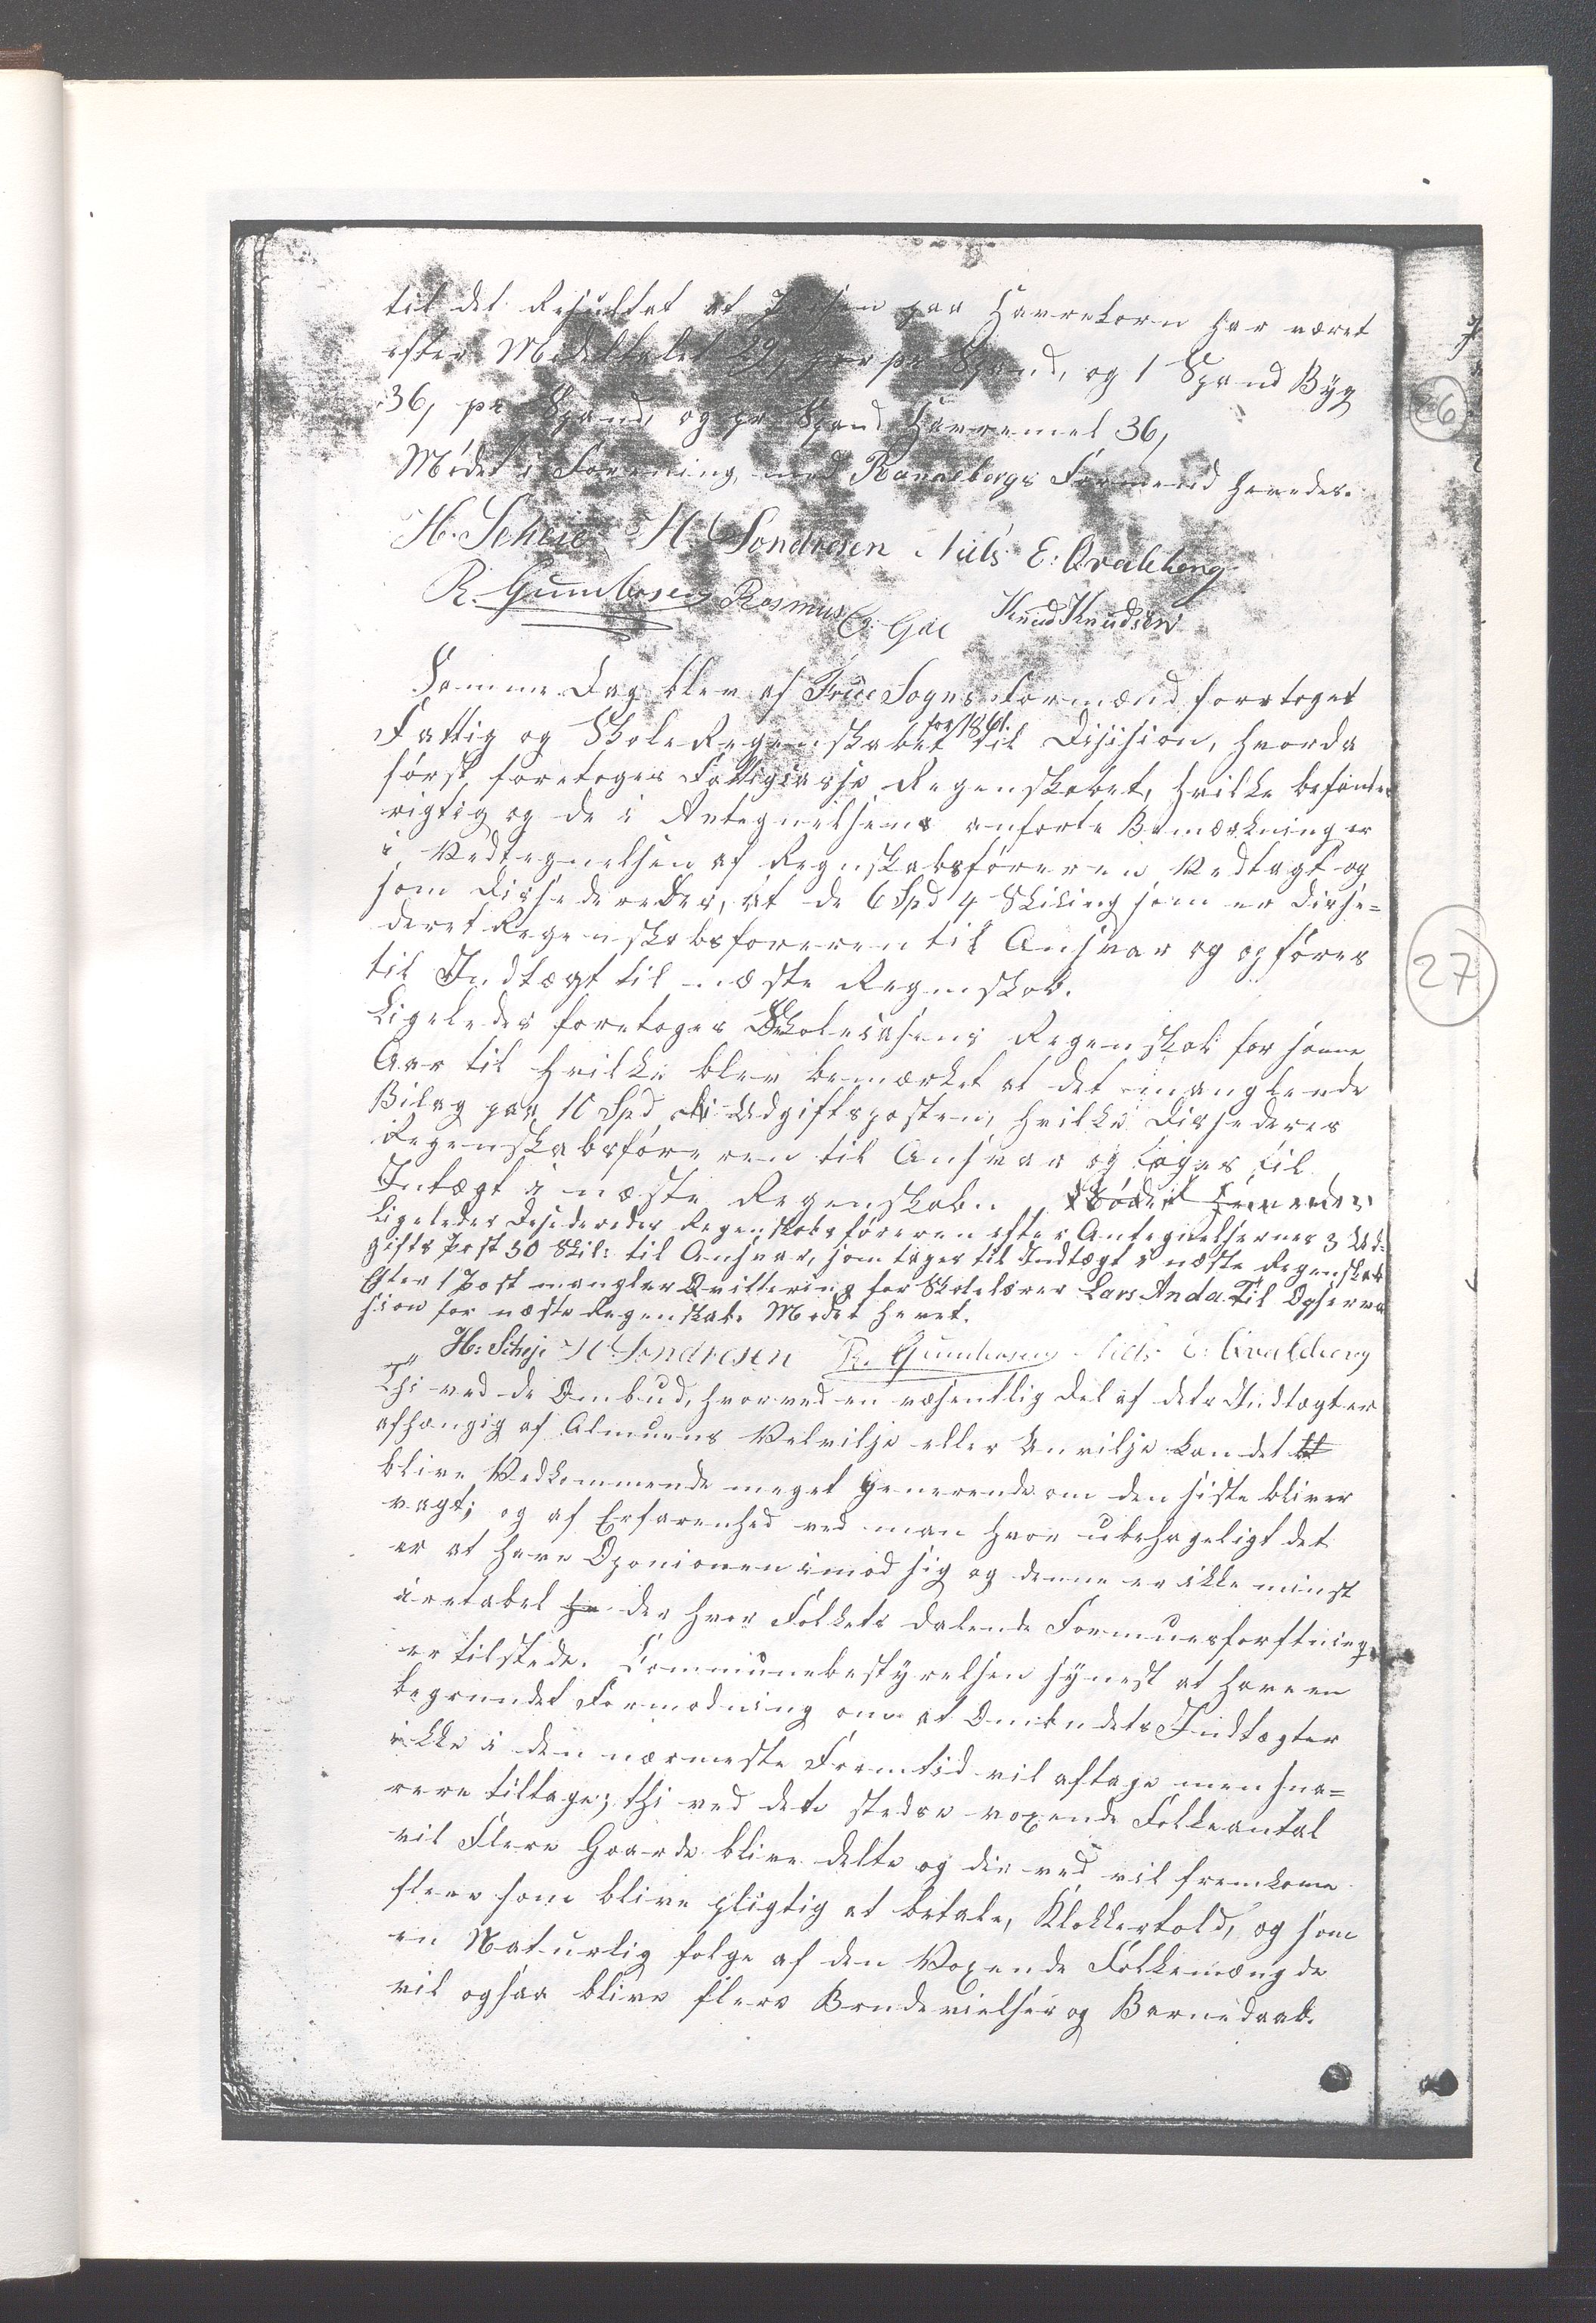 til det Resultat at Prisen paa Havrekorn har været
efter Middeltalet 29, per pr Spand, og 1 Spand Byg
36, pr Spand, og pr Spand Havremel 36,
Mødet i Forening med Rannebergs Formænd hævedes.
H. Scheie H Sondresen Niels E: Qvaleberg
R. Gunnbersen Rasmus E. Goe Knud Knudsen
Samme Dag blev af Frue Sogns Formænd foretaget
for 1861.
Fattig og Skole Regenskabet til Disision, hvorda
først foretoges Fattigcasse Regenskabet, hvilke befantes
rigtig og de i Antegnelsens anforte Bemærkninger
i Vedtegnelsen af Regnskabsføreren Vedtagt og
som Dissederedes, at de 6 Spd 4 Skiling som er disse=
deret Regenskabsforeren til Ansvar og opføres
til Indtægt til næste Regenskab.
Ligeledes foretoges Skolecasens Regenskab for same
Aar til hvilke blev bemærket at det manglende
Bilag paa 10 Spd i Udgiftsposten, hvilke Dissederes
Regenskabsføreren til Ansvar og tages til
Intægt i næste Regenskab. Mødet hævedes
Ligeledes Desideredes Regenskabsføreren efter Antegnelsernes 3 Ud=
gifts Post 30 Skil: til Ansvar, som tages til Indtægt i næste Regenskab
Efter 1 Post mangler Qvittering for Skolelærer Lars Anda. Til Opserva
sion for næste Regenskab. Mødet hevet.
H: Scheje H Sondresen R. Gunnbersen Niels E: Qvaleberg
Thi ved de Ombud, hvorved en væsentlig Del af dets Indtægter
afhængig af Almuens Velvilje eller Uvilje kan det
blive Vedkommende meget generende om den siste bliver
vagt; og af Erfarenhed ved man hvor ubehageligt det
er at have Oponionen imod sig og denne er ikke minst
iretabel der hvor Folkets dalende Formuesforfatning
er tilstede. Communebestyrelsen synest at have en
begrundet Formodning om at Ombudets Indtægter
ikke i den nærmeste Fremtid vil aftage men sna=
rere tiltage; thi ved det stedse voxende Folkeantal
vil Flere Gaarde blive delte og derved vil fremkome
flere som blive pligtig at betale, Klokkertold, og som
en Naturlig folge af den Voxende Folkemængde
vil ogsaa blive flere Brudevielser og Barnedaab.
26
27